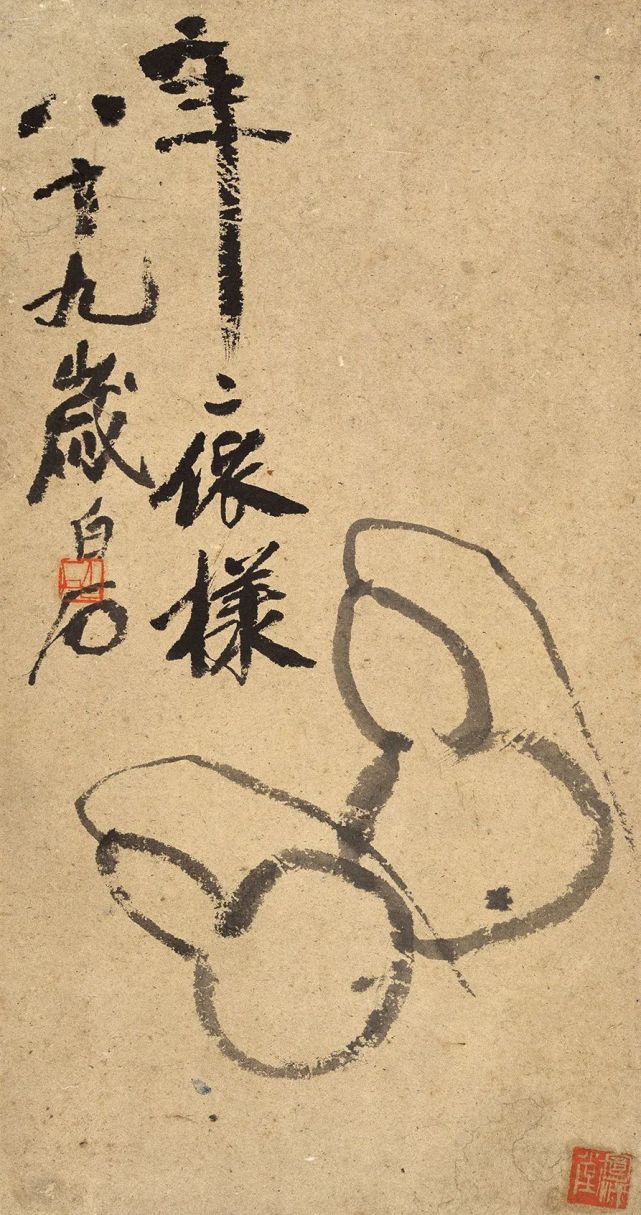 年〻依樣
八十九歲白石